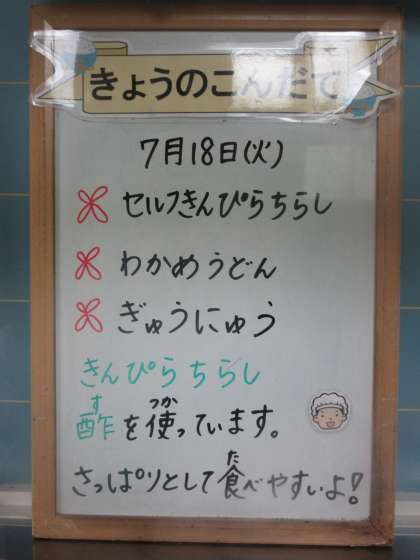 きょうのこんだて
7月18日(火)
セルフきんぴらちらし
わかめうどん
ぎゅうにゅう
きんぴらちらし
す つか
酢を使っています。
た
さっぱりとして食べやすいよ!